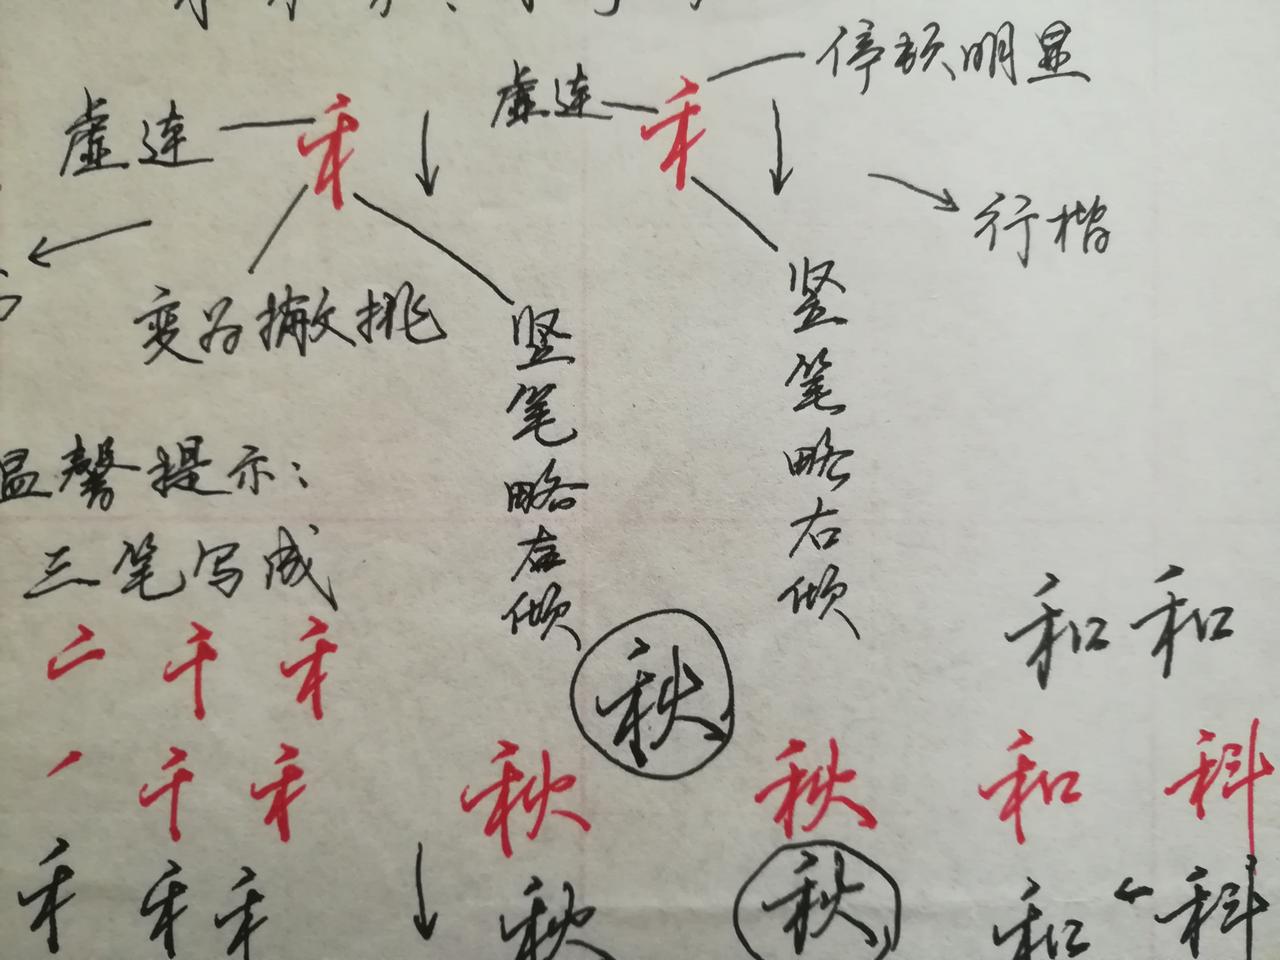 停顿明显
虚连 禾 虚连 禾
行楷
变为撇挑
竖笔略右倾
竖笔略右倾
温馨提示:
三笔写成
二 千 禾
和 和
秋
一 千 禾 秋 秋 和 科
禾 禾 禾 秋 秋 和 科